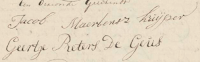 Jacob Maertensz Kuijper
Geertje Pieters De Geus